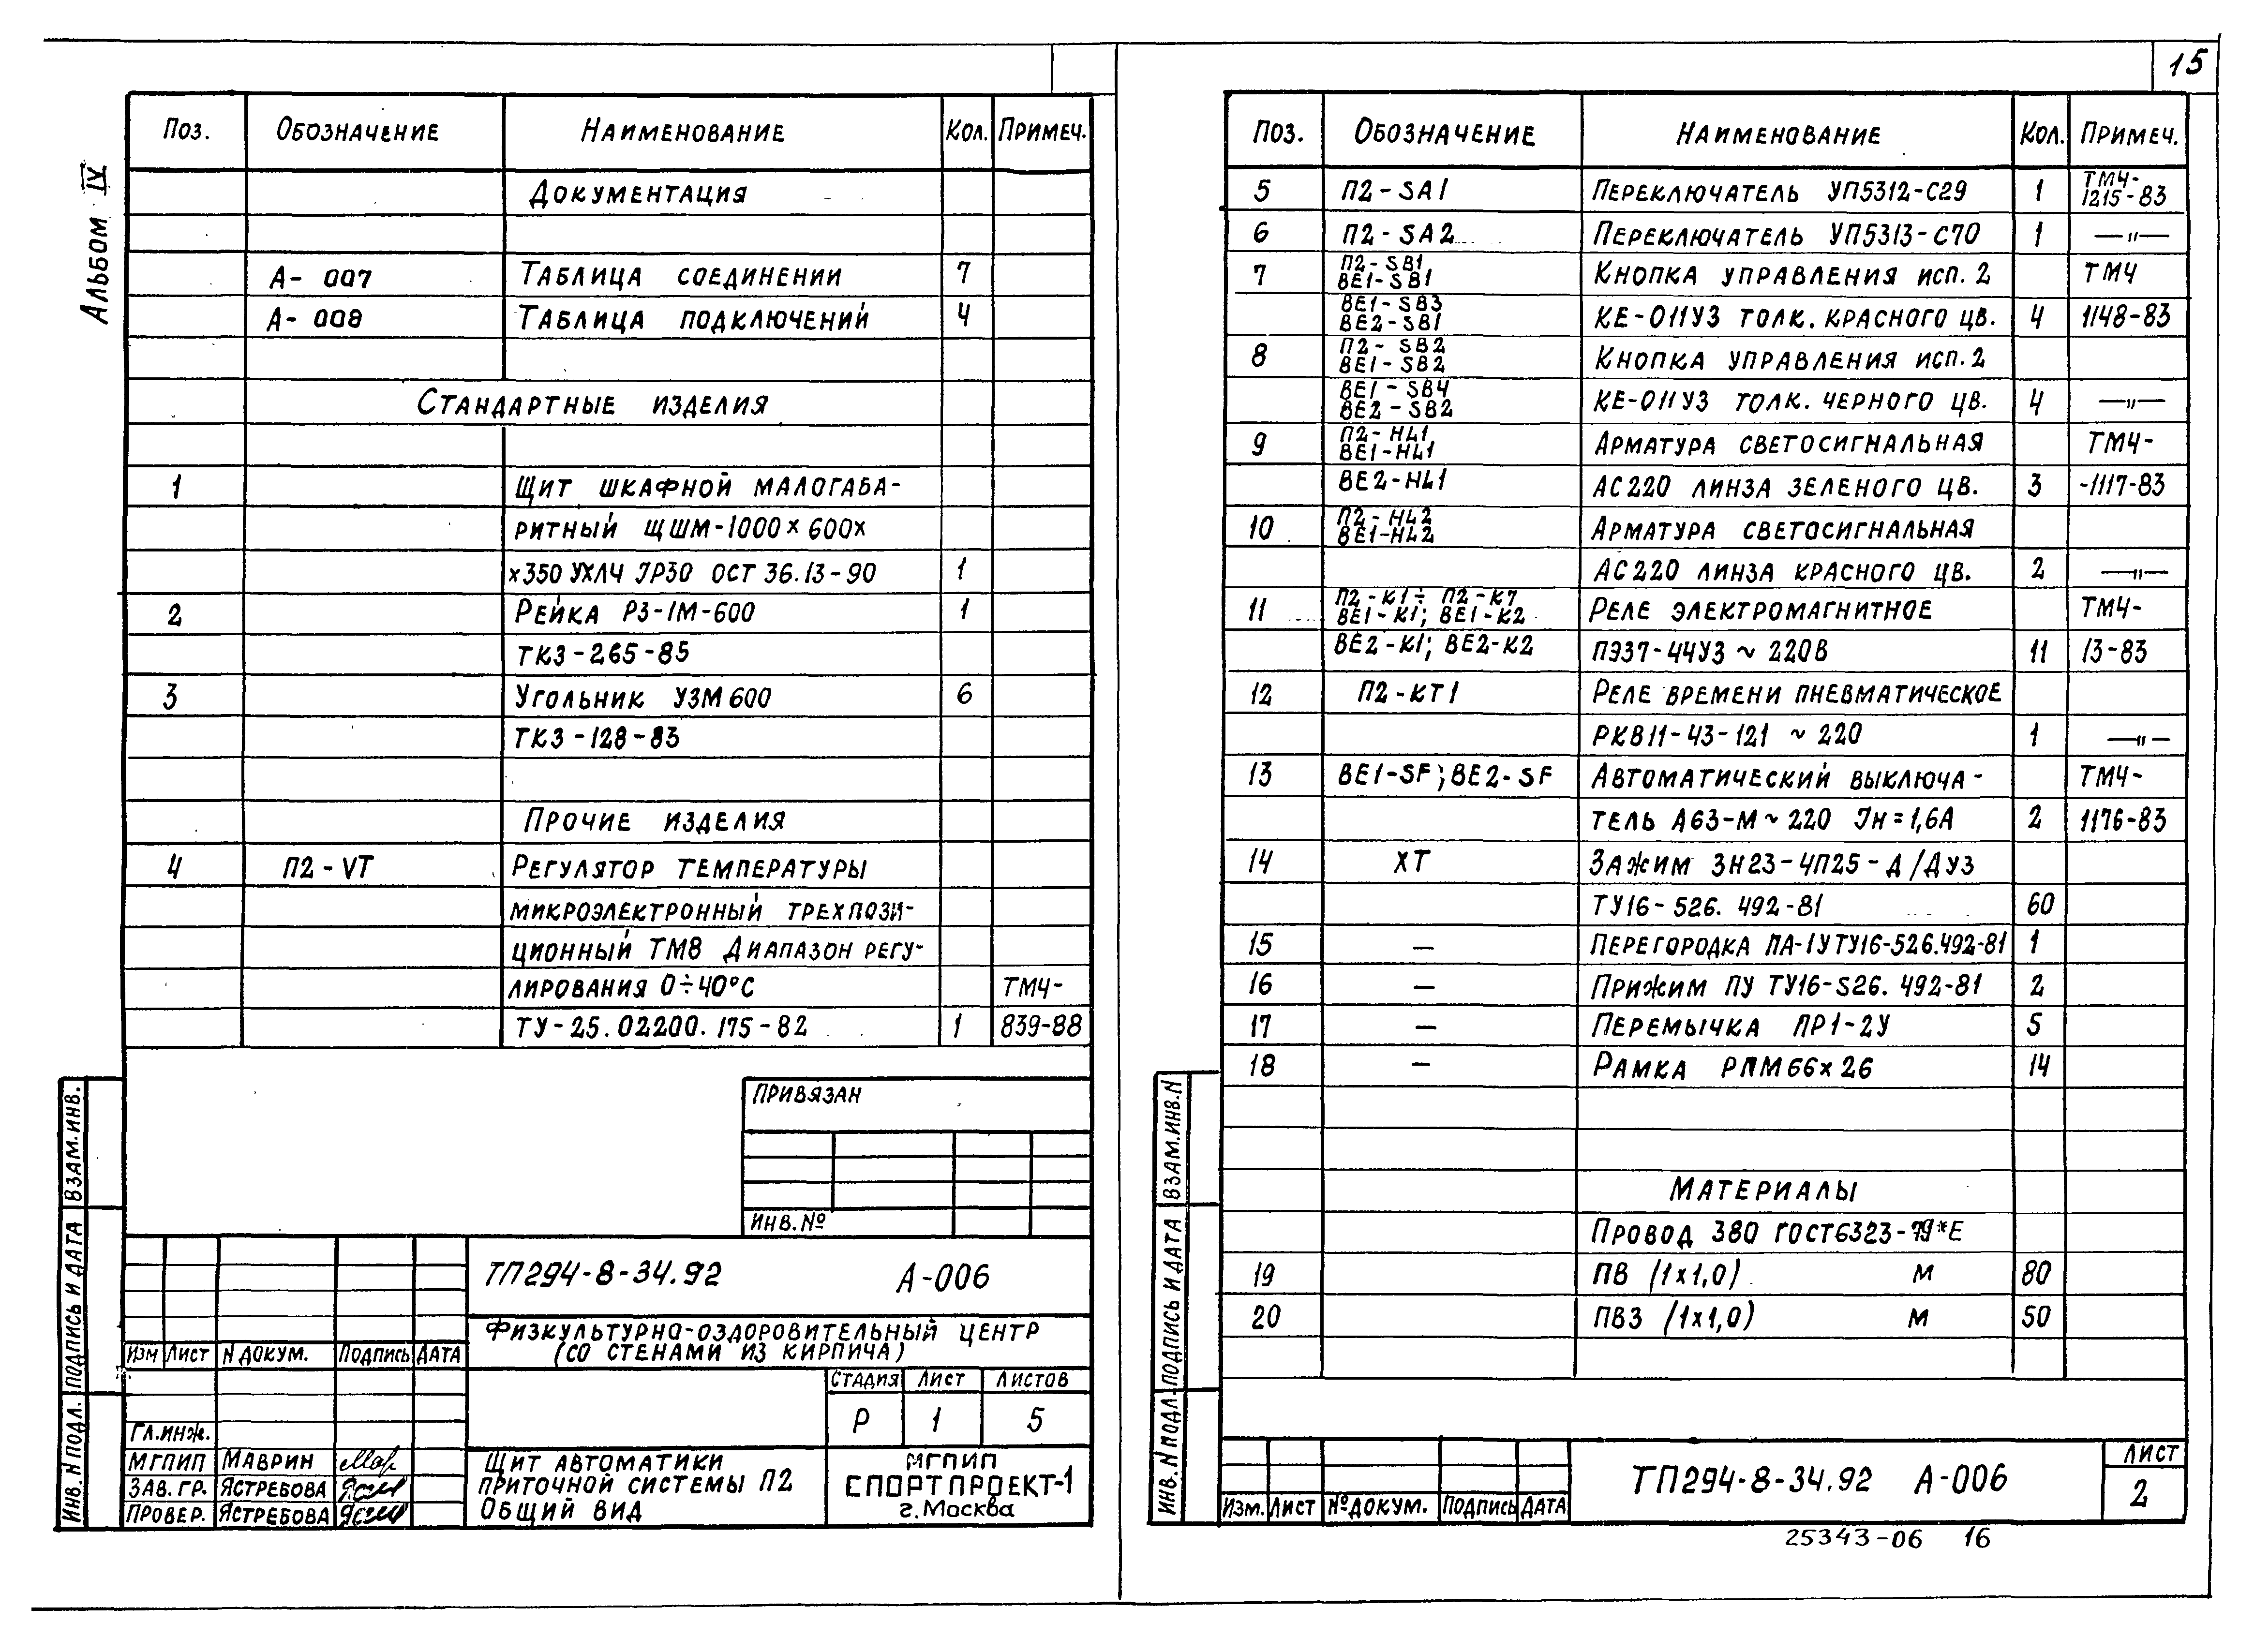 15
Альбом IV
Поз. Обозначение Наименование Кол. Примеч.
Документация
А-007 Таблица соединении 7
А-008 Таблица подключений 4
Стандартные изделия
1 Щит шкафной малогаба-
ритный ЩШМ-1000х600х
х350 УХЛ4 IР30 ОСТ 36.13-90 1
2 Рейка РЗ-1М-600 1
ТКЗ-265-85
3 Угольник УЗМ600 6
ТКЗ-128-83
Прочие изделия
4 П2-VT Регулятор температуры
микроэлектронный трехпози-
ционный ТМ8 Диапазон регу-
лирования 0÷40°С ТМ4-
ТУ-25.02200.175-82 1 839-88
Привязан
Инв.№
ТП294-8-34.92 А-006
Физкультурно-оздоровительный центр
(со стенами из кирпича)
Изм Лист N докум. Подпись Дата
Стадия Лист Листов
Р 1 5
Гл.инж.
МГПИП Маврин
Зав.гр. Ястребова
Провер. Ястребова
Щит автоматики
приточной системы П2
Общий вид
МГПИП
СПОРТПРОЕКТ-1
г.Москва
Инв.N подл. Подпись и дата Взам.инв.
Поз. Обозначение Наименование Кол. Примеч.
5 П2-SA1 Переключатель УП5312-С29 1 ТМ4-
1215-83
6 П2-SA2 Переключатель УП5313-С70 1 —"—
7 П2-SB1
ВЕ1-SB1 Кнопка управления исп.2 ТМ4
ВЕ1-SB3
ВЕ2-SB1 КЕ-011У3 толк.красного цв. 4 1148-83
8 П2-SB2
ВЕ1-SB2 Кнопка управления исп.2
ВЕ1-SB4
ВЕ2-SB2 КЕ-011У3 толк.черного цв. 4 —"—
9 П2-HL1
ВЕ1-HL1 Арматура светосигнальная ТМ4-
ВЕ2-HL1 АС220 линза зеленого цв. 3 -1117-83
10 П2-HL2
ВЕ1-HL2 Арматура светосигнальная
АС220 линза красного цв. 2 —"—
11 П2-К1÷П2-К7
ВЕ1-К1; ВЕ1-К2 Реле электромагнитное ТМ4-
ВЕ2-К1; ВЕ2-К2 ПЭ37-44У3 ~ 220В 11 13-83
12 П2-КТ1 Реле времени пневматическое
РКВ11-43-121 ~ 220 1 —"—
13 ВЕ1-SF; ВЕ2-SF Автоматический выключа-
ТМ4-
тель А63-М ~ 220 Iн=1,6А 2 1176-83
14 ХТ Зажим ЗН23-4П25-Д/ДУ3
ТУ16-526.492-81 60
15 — Перегородка ПА-1У ТУ16-526.492-81 1
16 — Прижим ПУ ТУ16-526.492-81 2
17 — Перемычка ПР1-2У 5
18 — Рамка РПМ66х26 14
Материалы
Провод 380 ГОСТ6323-79*Е
19 ПВ (1х1,0) м 80
20 ПВ3 (1х1,0) м 50
Изм. Лист №докум. Подпись Дата
ТП294-8-34.92 А-006
Лист
2
Инв.N подл. Подпись и дата Взам.инв.N
25343-06 16